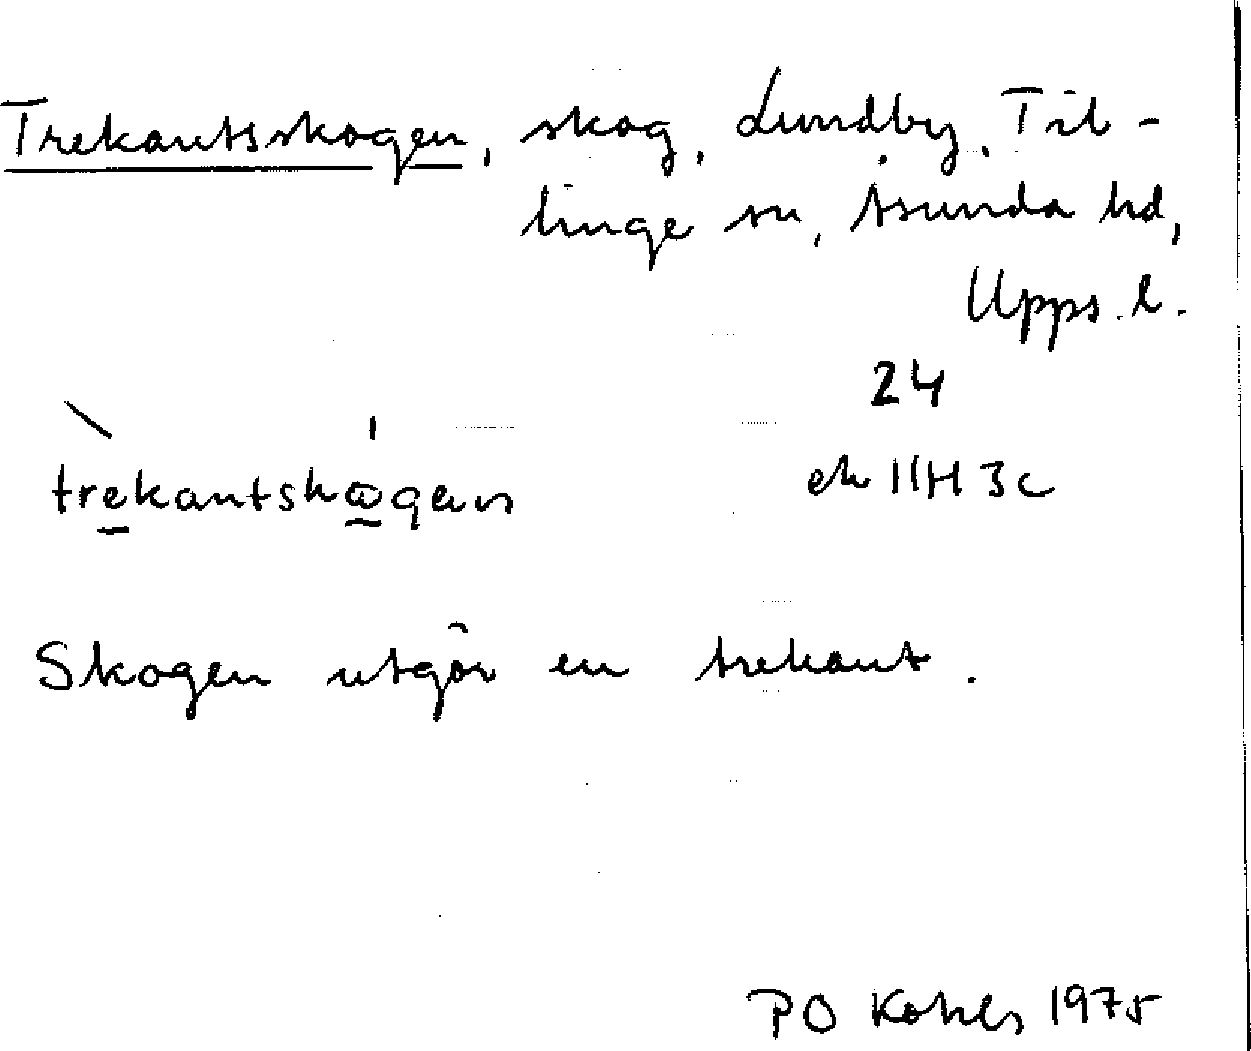 Trekantsskogen, skog, Lundby, Til-
linge sn, Åsunda hd,
Upps. l.
24
trekantskogen
ek 11H 3c
Skogen utgör en trekant.
PO 1975